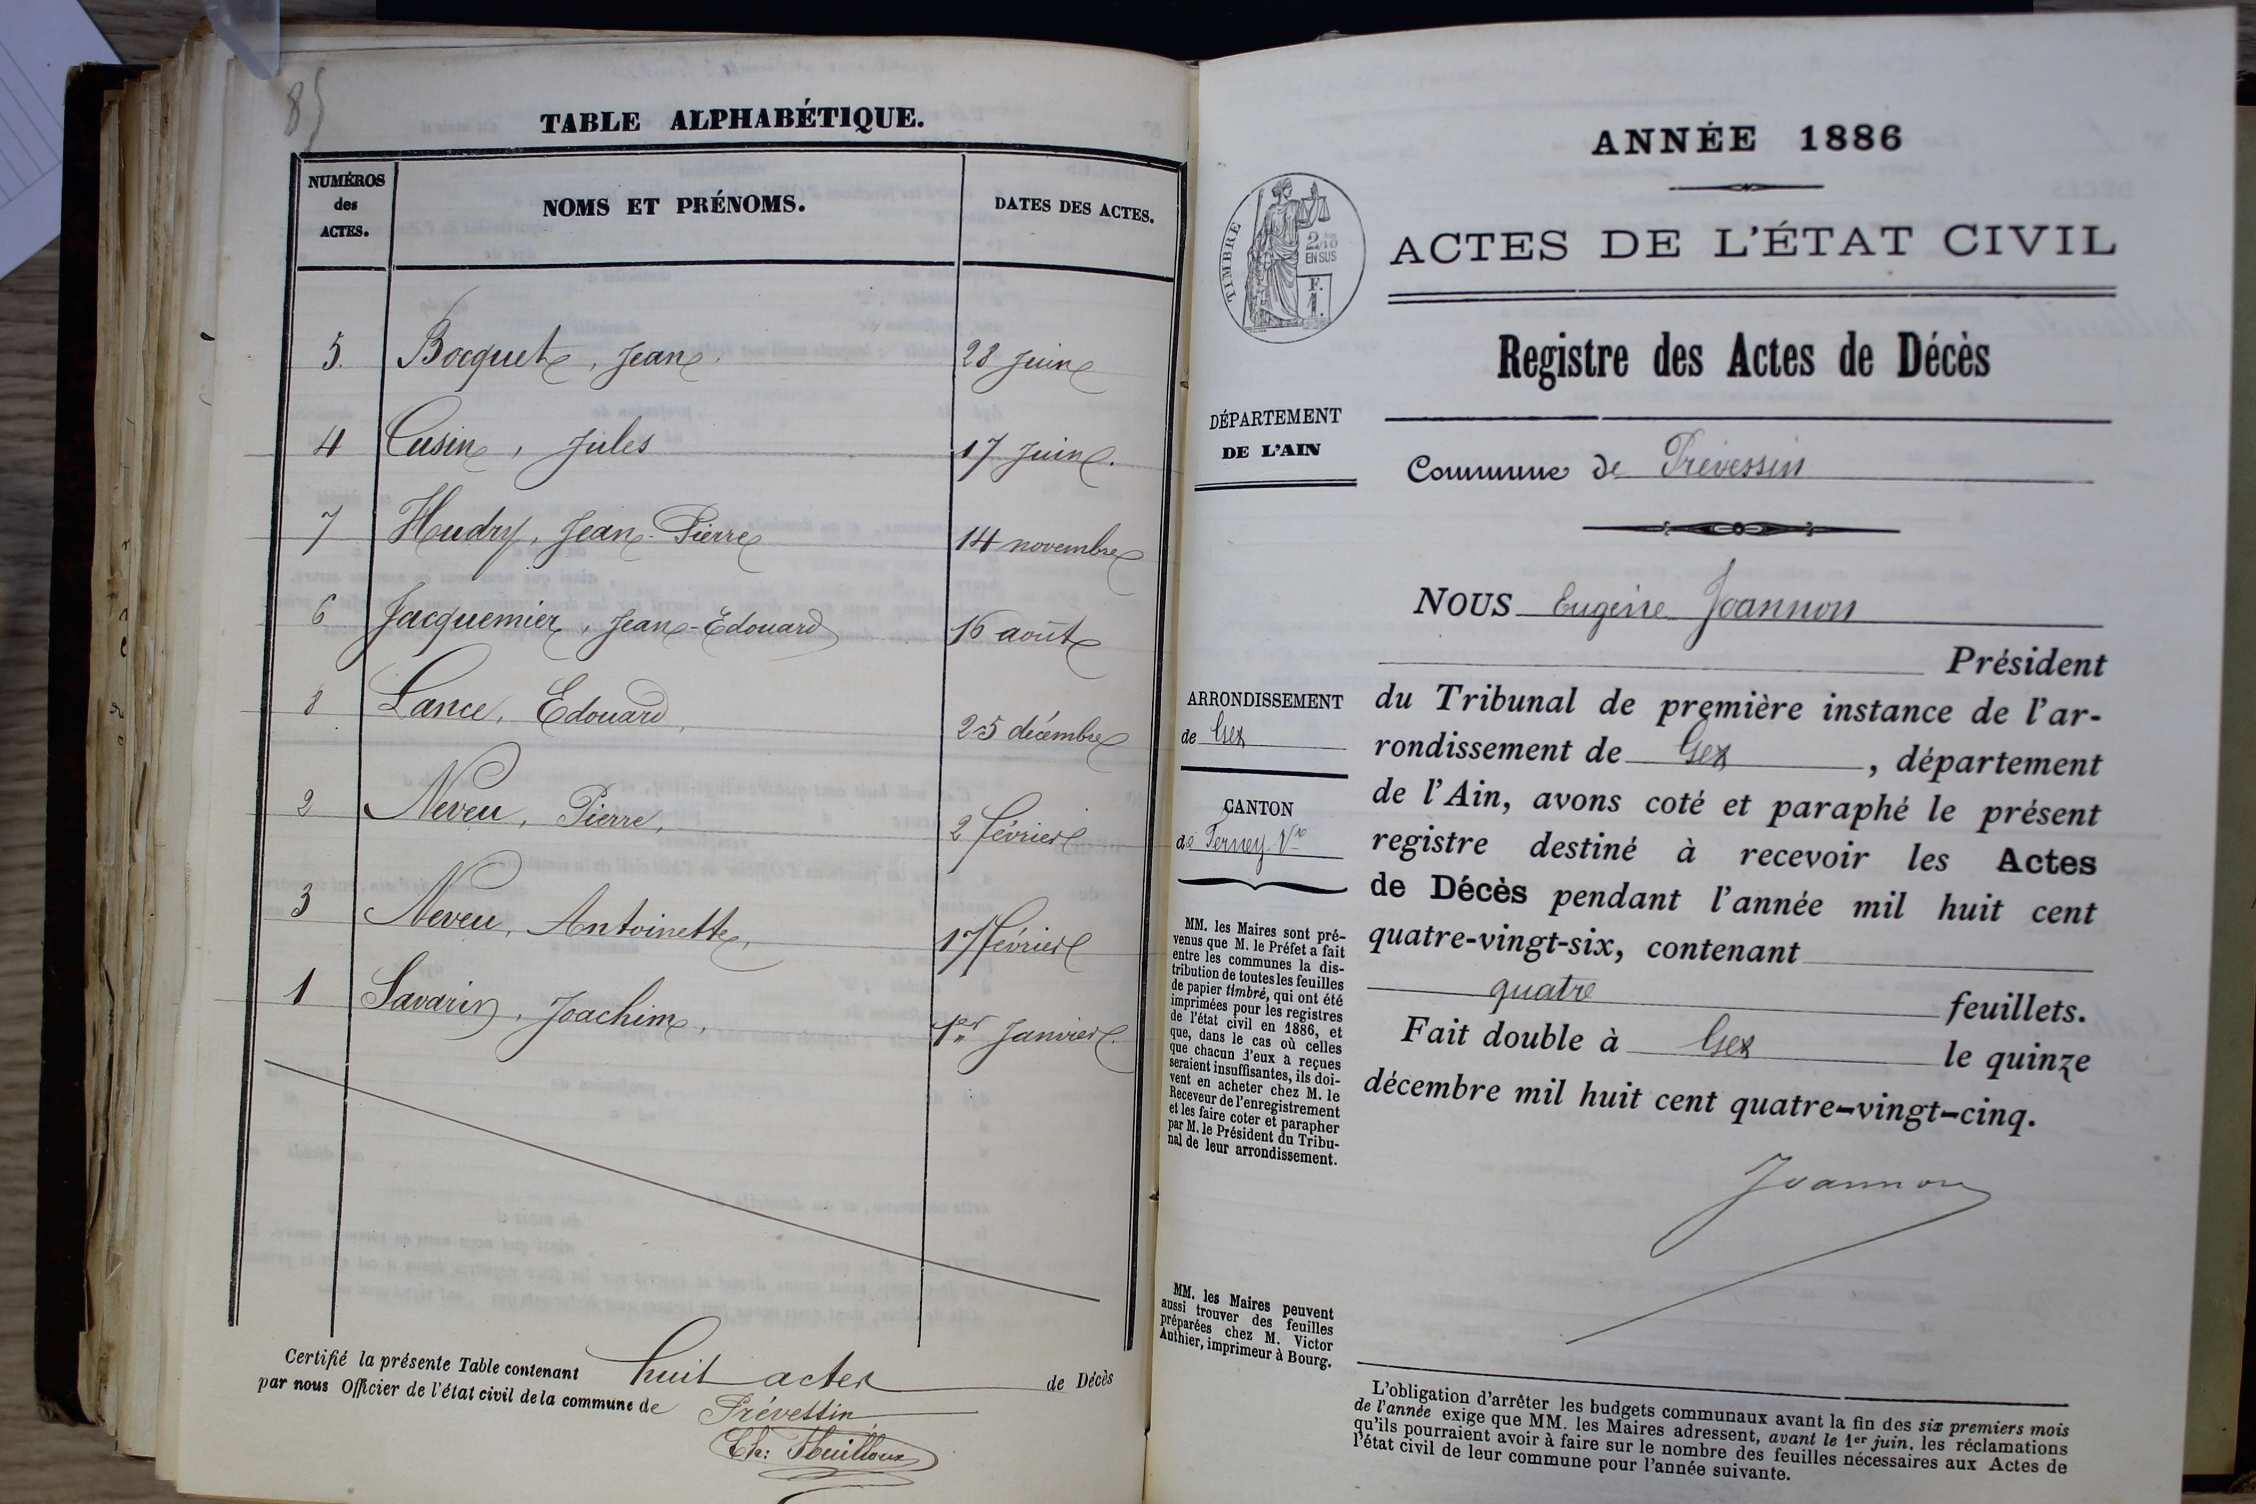 85
TABLE ALPHABÉTIQUE.
NUMÉROS
des
ACTES.
NOMS ET PRÉNOMS.
DATES DES ACTES.
5. Bocquet, Jean. 28 juin
4 Cusin, Jules 17 juin.
7 Hudry, Jean-Pierre 14 novembre
6 Jacquemier, Jean-Edouard 16 août
8 Lance, Edouard, 25 décembre
2 Neveu, Pierre, 2 février
3 Neveu, Antoinette, 17 février
1 Savarin, Joachim, 1er Janvier.
Certifié la présente Table contenant huit actes de Décès
par nous Officier de l'état civil de la commune de Prévessin
ANNÉE 1886
TIMBRE
2/10
EN SUS
F.
1.
ACTES DE L'ÉTAT CIVIL
Registre des Actes de Décès
DÉPARTEMENT
DE L'AIN
Commune de Prévessin
NOUS Eugène Joannon
Président
ARRONDISSEMENT
de Gex
CANTON
de Ferney-Vre
du Tribunal de première instance de l'ar-
rondissement de Gex, département
de l'Ain, avons coté et paraphé le présent
registre destiné à recevoir les Actes
de Décès pendant l'année mil huit cent
quatre-vingt-six, contenant
quatre feuillets.
Fait double à Gex le quinze
décembre mil huit cent quatre-vingt-cinq.
Joannon
MM. les Maires sont pré-
venus que M. le Préfet a fait
entre les communes la dis-
tribution de toutes les feuilles
de papier timbré, qui ont été
imprimées pour les registres
de l'état civil en 1886, et
que, dans le cas où celles
que chacun d'eux a reçues
seraient insuffisantes, ils doi-
vent en acheter chez M. le
Receveur de l'enregistrement
et les faire coter et parapher
par M. le Président du Tribu-
nal de leur arrondissement.
MM. les Maires peuvent
aussi trouver des feuilles
préparées chez M. Victor
Authier, imprimeur à Bourg.
L'obligation d'arrêter les budgets communaux avant la fin des six premiers mois
de l'année exige que MM. les Maires adressent, avant le 1er juin, les réclamations
qu'ils pourraient avoir à faire sur le nombre des feuilles nécessaires aux Actes de
l'état civil de leur commune pour l'année suivante.